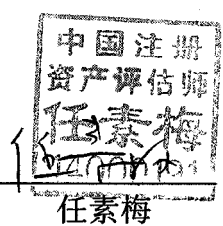 中国注册
资产评估师
任素梅
任素梅